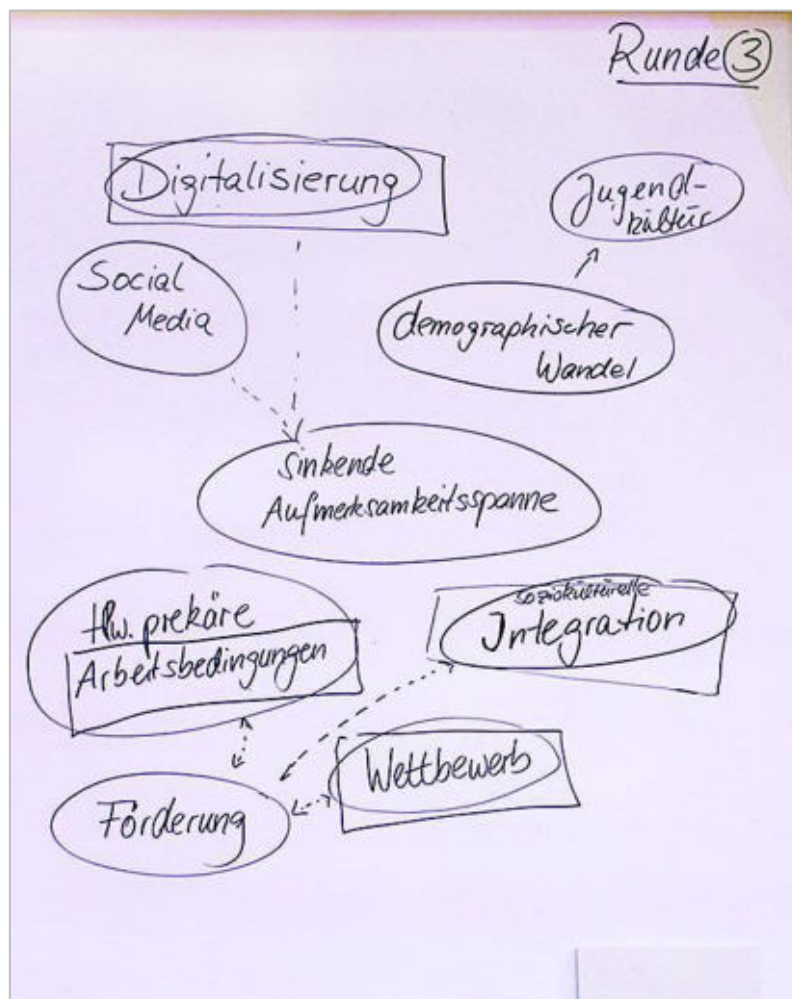 Runde 3
Digitalisierung
Jugend-
kultur
Social
Media
demographischer
Wandel
sinkende
Aufmerksamkeitsspanne
tlw. prekäre
Arbeitsbedingungen
soziokulturelle
Integration
Wettbewerb
Förderung